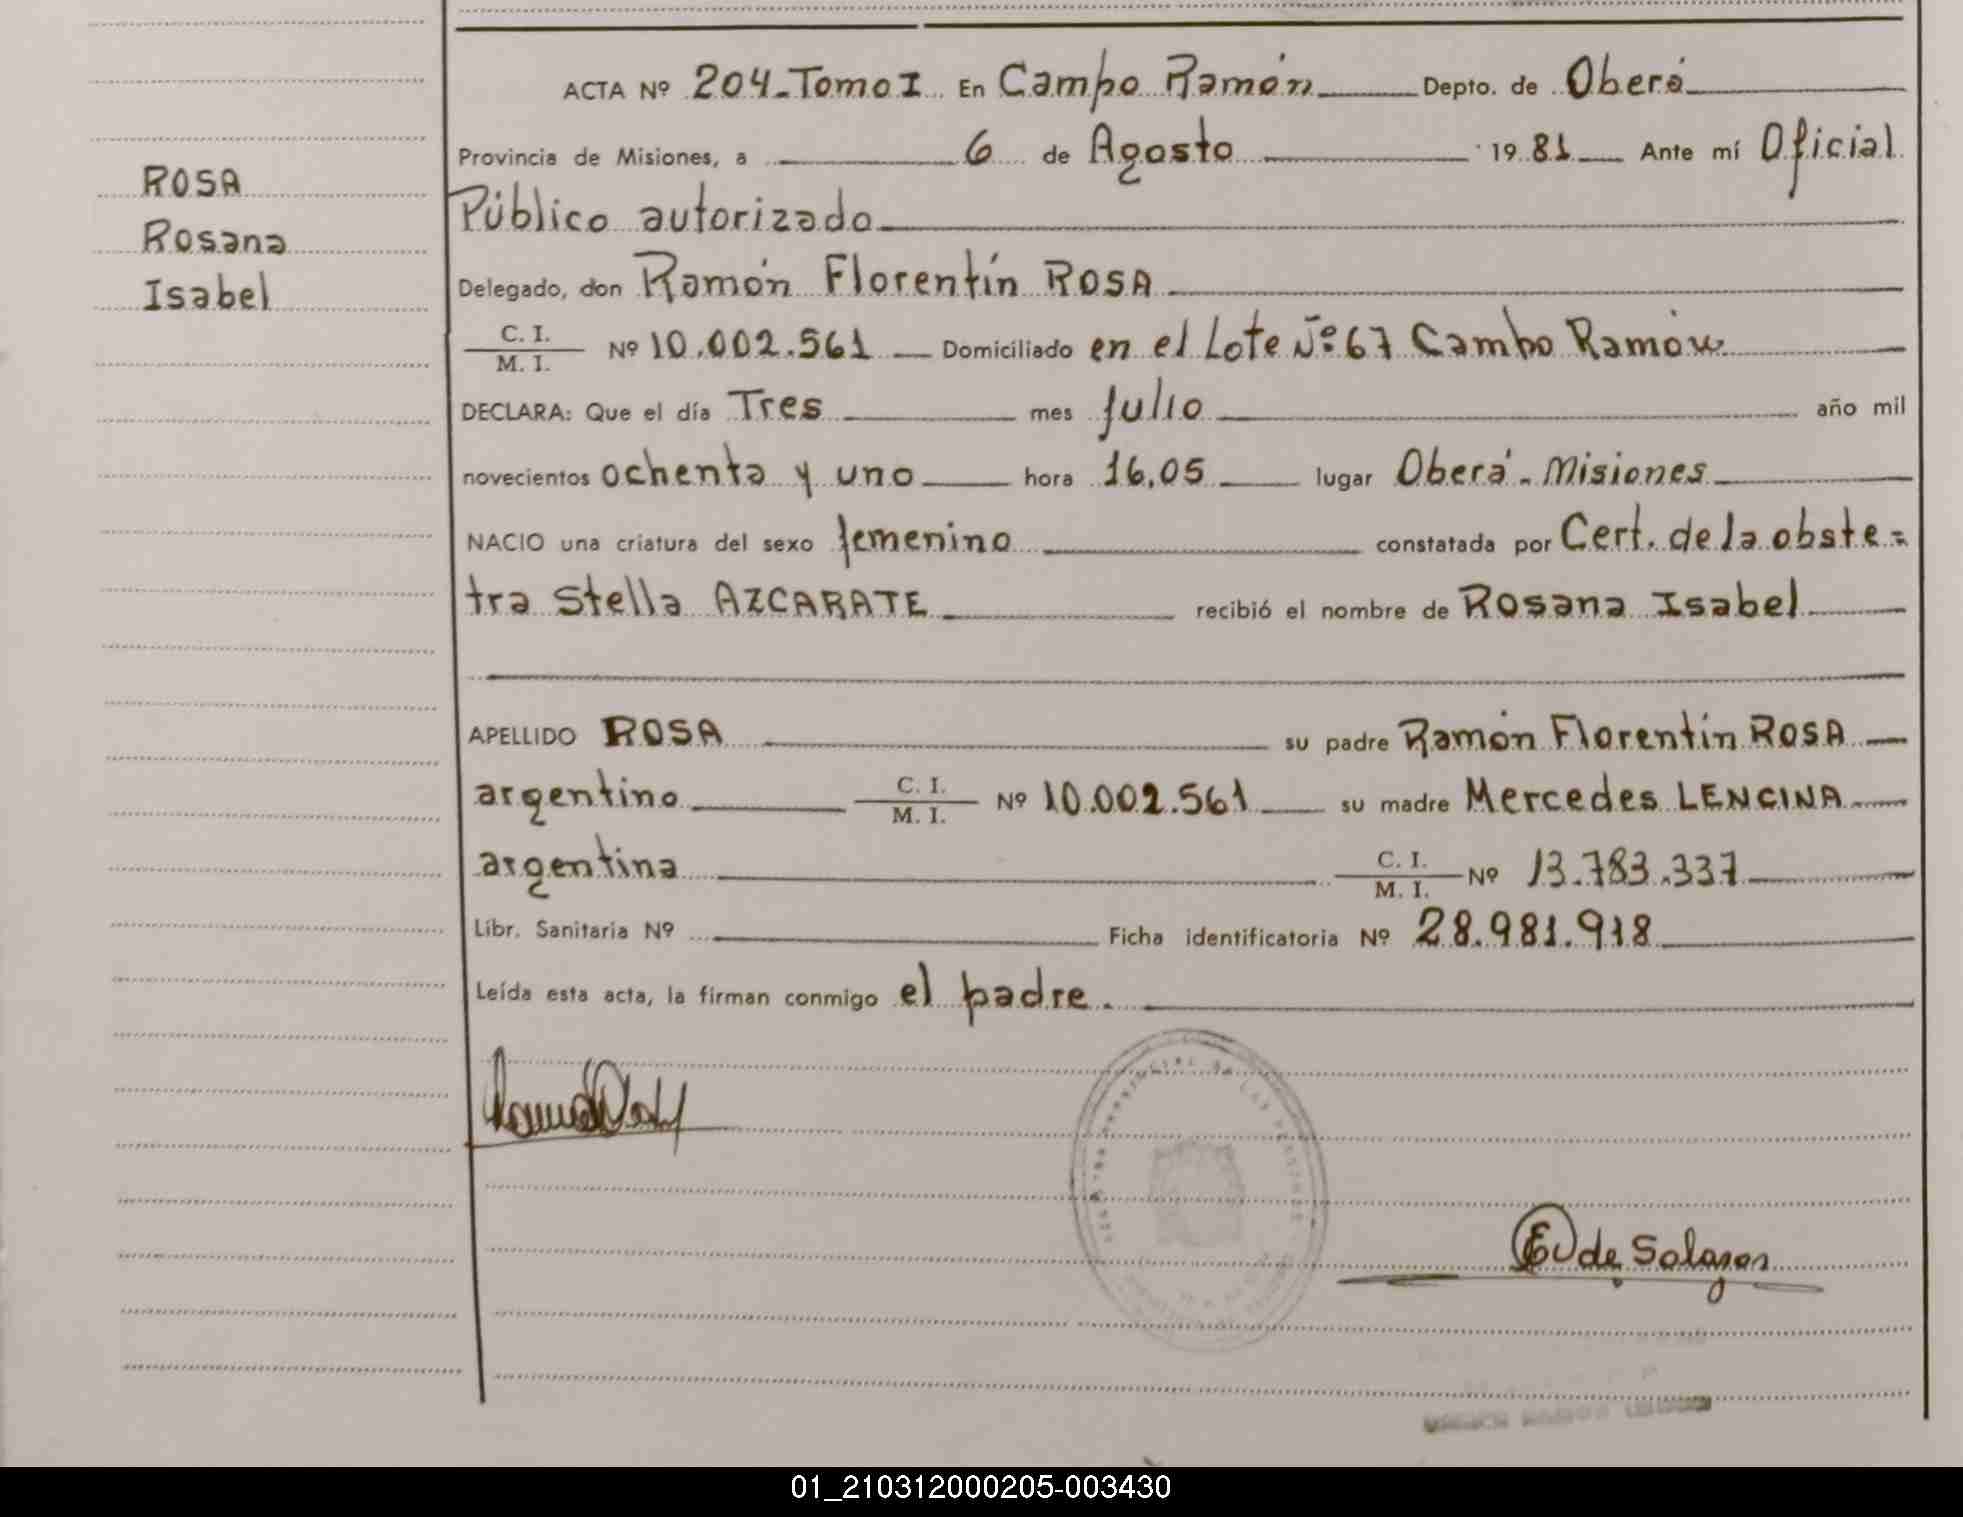 ROSA
Rosana
Isabel
ACTA Nº 204-Tomo I En Campo Ramón Depto. de Oberá
Provincia de Misiones, a 6 de Agosto 1981 Ante mí Oficial
Público autorizado
Delegado, don Ramón Florentín ROSA
C. I.
M. I. Nº 10.002.561 Domiciliado en el Lote Nº 67 Campo Ramón
DECLARA: Que el día Tres mes Julio año mil
novecientos ochenta y uno hora 16,05 lugar Oberá - Misiones
NACIO una criatura del sexo femenino constatada por Cert. de la obste=
tra Stella AZCARATE recibió el nombre de Rosana Isabel
APELLIDO ROSA su padre Ramón Florentín ROSA
argentino C. I.
M. I. Nº 10.002.561 su madre Mercedes LENCINA
argentina C. I.
M. I. Nº 13.783.337
Libr. Sanitaria Nº Ficha identificatoria Nº 28.981.918
Leída esta acta, la firman conmigo el padre.
de
01_210312000205-003430